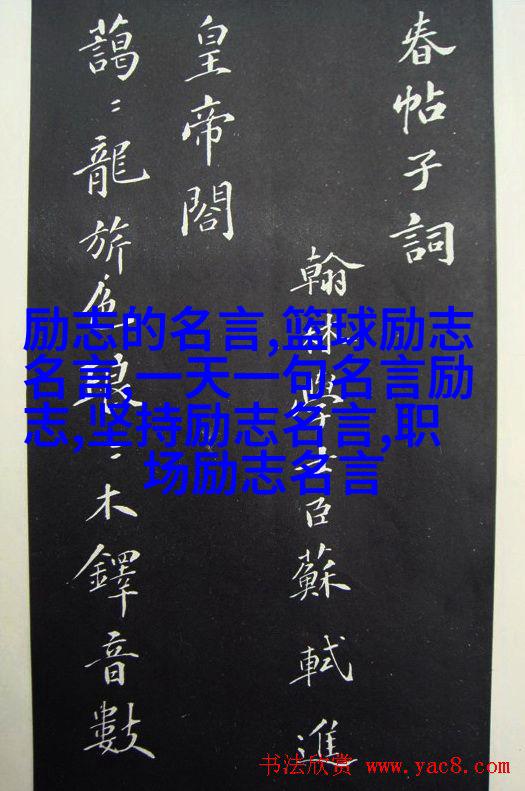 春帖子詞
翰林學士臣蘇軾進
皇帝閣
藹〻龍旂色琅〻木鐸音數
励志的名言,篮球励志
名言,一天一句名言励
志,坚持励志名言,职
场励志名言
书法欣赏 www.yac8.com